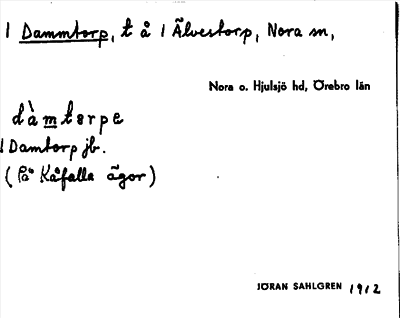 1 Dammtorp, t å 1 Älvestorp, Nora sn,
Nora o. Hjulsjö hd, Örebro län
dàmtɐrpɐ
1 Damtorp jb.
(På Kåfalla ägor)
JÖRAN SAHLGREN 1912